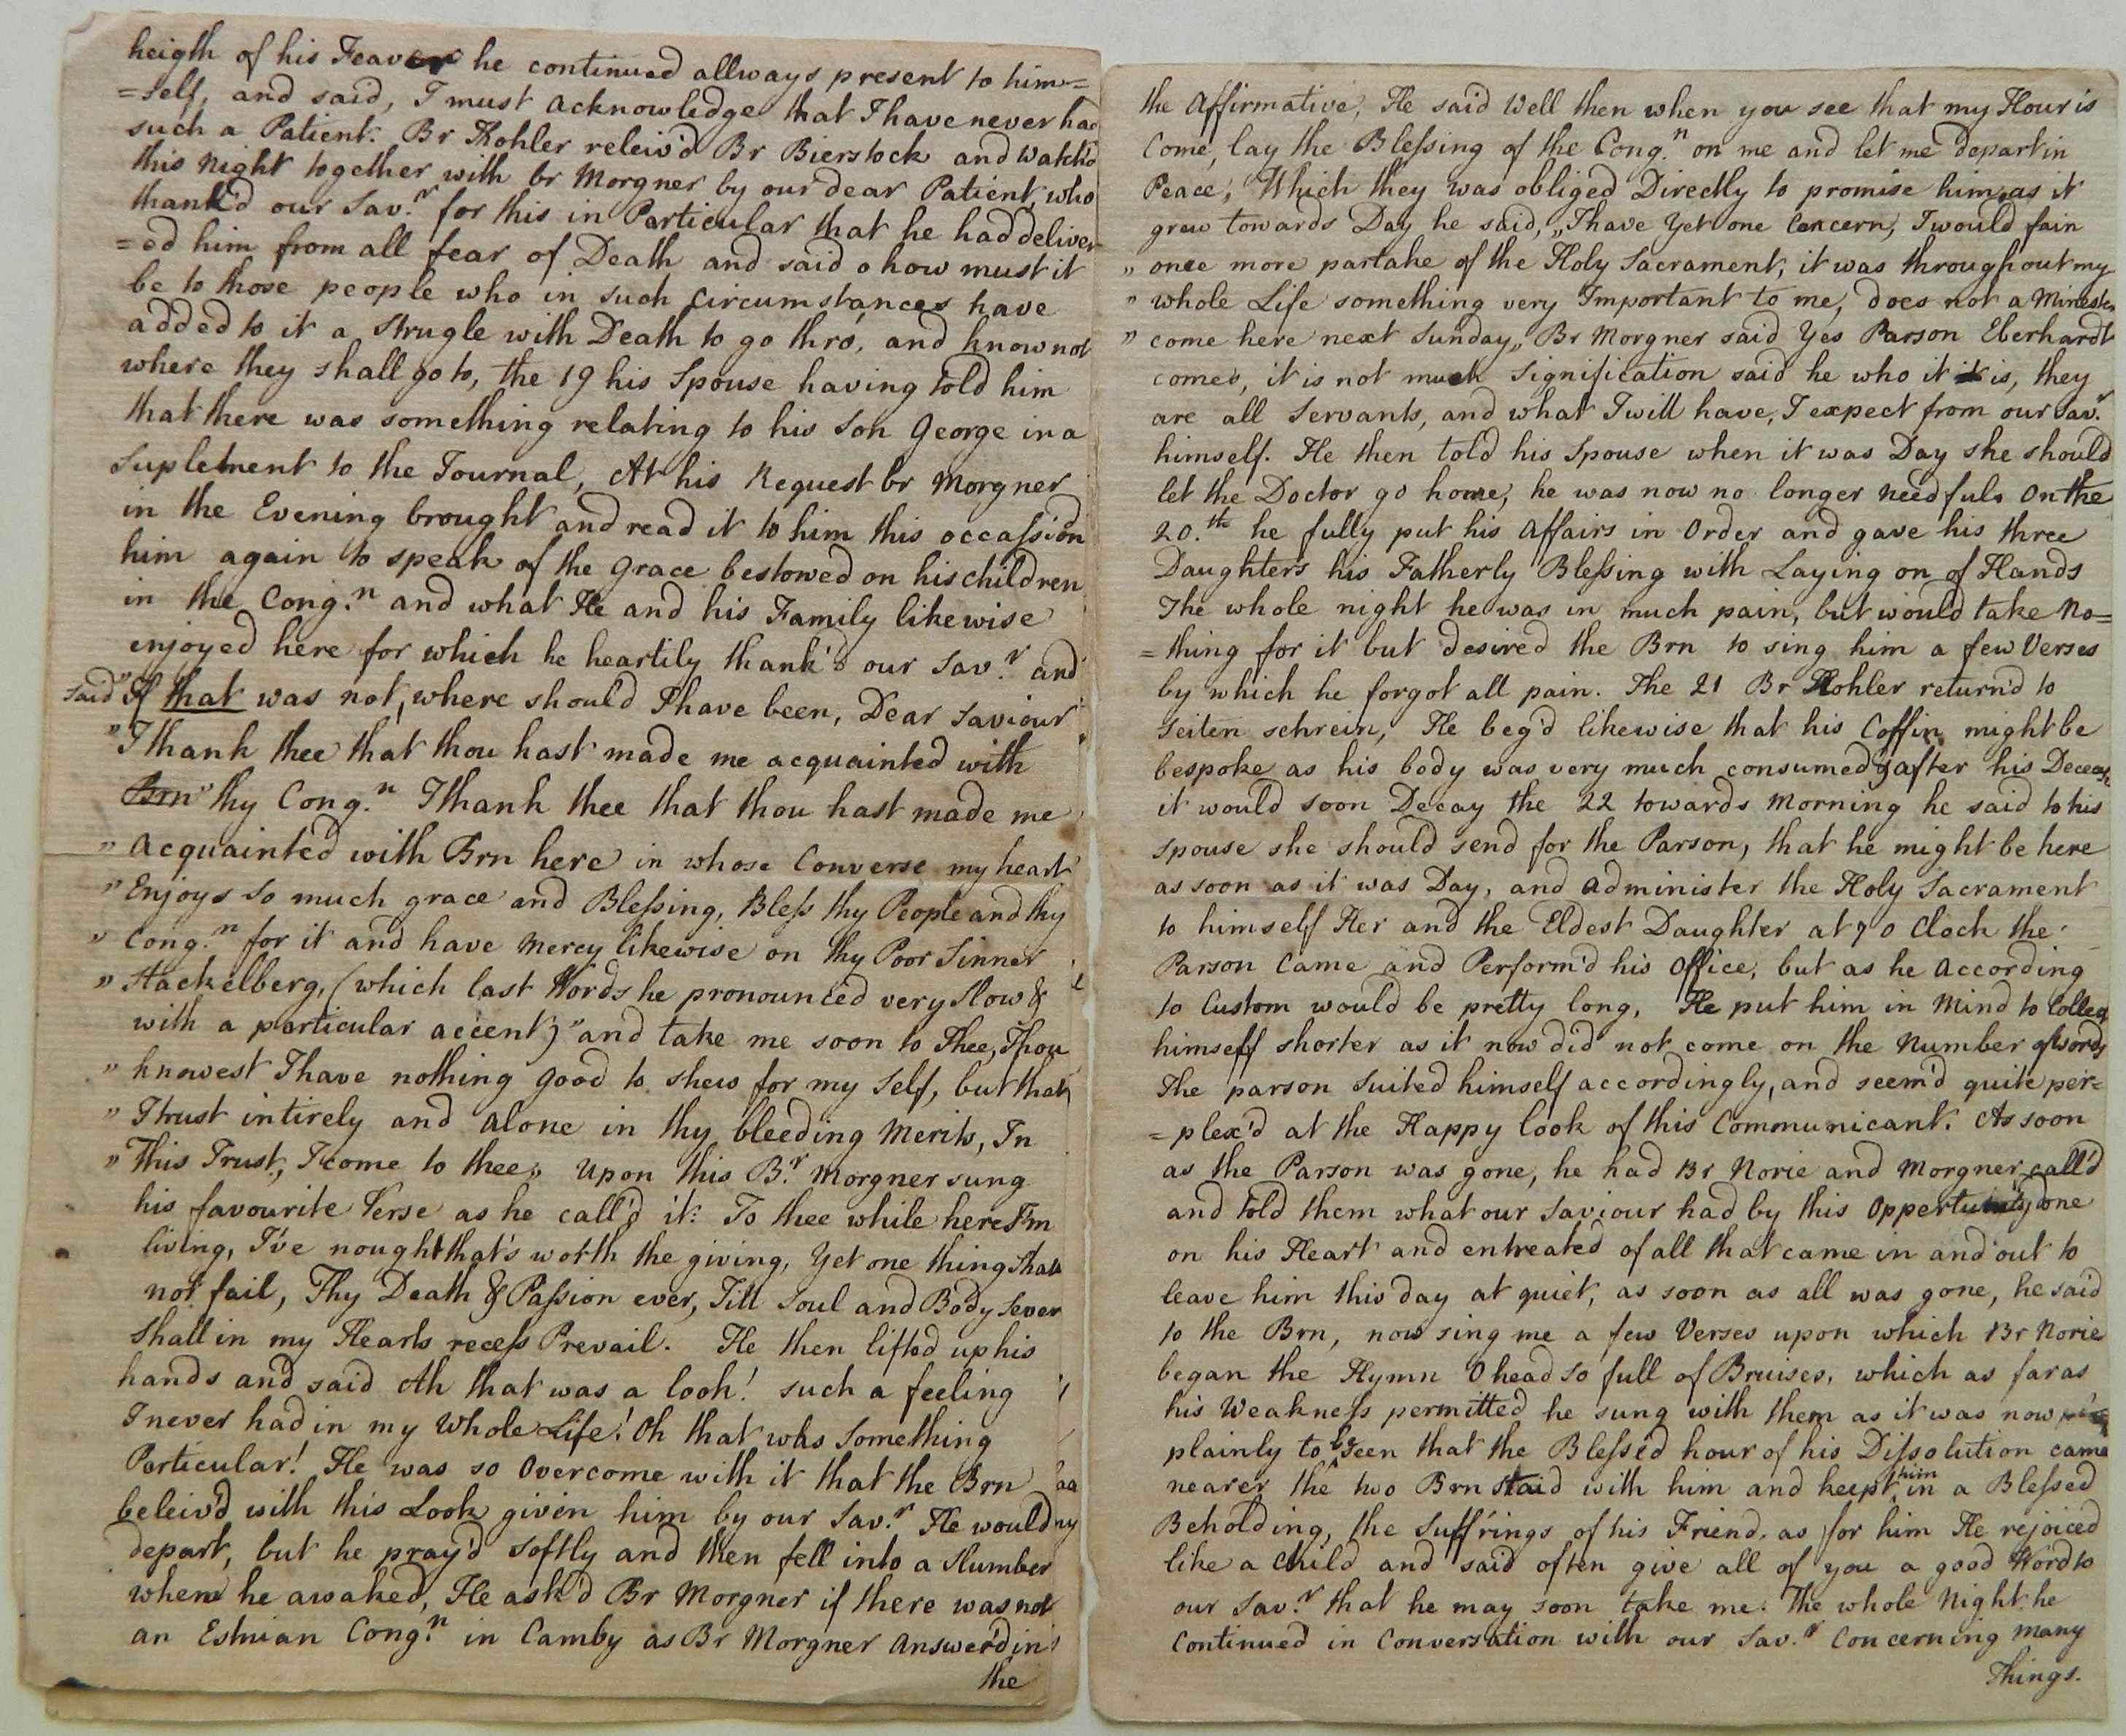 heigth of his Feaver he continued allways present to him=
=self, and said, I must acknowledge that I have never had
such a Patient. Br Kohler releiv'd Br Bierstock and watch'd
this night together with br Morgner by our dear Patient, who
thank'd our Sav.r for this in Particular that he had deliver=
=ed him from all fear of Death and said o how must it
be to those people who in such Circumstances have
added to it a Strugle with Death to go thro', and know not
where they shall go to, the 19 his Spouse having told him
that there was something relating to his Son George in a
Suplement to the Journal, At his Request br Morgner
in the Evening brought and read it to him this occassion
him again to speak of the Grace bestowed on his children
in the Cong.n and what He and his Family likewise
enjoyed here for which he heartily thank'd our Sav.r and
said "If that was not, where should I have been, Dear Saviour
" I thank thee that thou hast made me acquainted with
Brn " thy Cong.n I thank thee that thou hast made me
" Acquainted with Brn here in whose Converse my heart
" Enjoys so much grace and Blessing, Bless thy People and thy
" Cong.n for it and have Mercy likewise on thy Poor Sinner
" Stackelberg, (which last Words he pronounced very Slow &
with a particular accent) " and take me soon to Thee, Thou
" knowest I have nothing good to shew for my Self, but that
" I trust intirely and Alone in thy bleeding Merits, In
" This Trust, I come to thee,, Upon this B.r Morgner sung
his favourite Verse as he call'd it: To thee while here I'm
living, I've nought that's worth the giving, Yet one thing Shall
not fail, Thy Death & Passion ever, Till Soul and Body Sever
Shall in my Hearts recess Prevail. He then lifted up his
hands and said Ah that was a look! such a feeling
I never had in my Whole Life! Oh that was Something
Particular! He was so Overcome with it that the Brn
beleiv'd with this Look given him by our Sav.r He would
depart, but he pray'd Softly and then fell into a Slumber
when he awaked, He ask'd Br Morgner if there was not
an Estnian Cong.n in Camby as Br Morgner Answer'd in
the
the Affirmative, He said Well then when you see that my Hour is
Come, lay the Blessing of the Cong.n on me and let me depart in
Peace, Which they was obliged Directly to promise him, as it
grew towards Day he said, "I have Yet one Concern, I would fain
" once more partake of the Holy Sacrament, it was throughout my
" whole Life something very Important to me, does not a Minester
" come here next Sunday,, Br Morgner said Yes Parson Eberhardt
comes, it is not much Signification said he who it it is, they
are all Servants, and what I will have, I expect from our Sav.r
himself. He then told his Spouse when it was Day she should
let the Doctor go home, he was now no longer needfull On the
20.th he fully put his Affairs in Order and gave his three
Daughters his Fatherly Blessing with Laying on of Hands
The whole night he was in much pain, but would take No=
=thing for it but desired the Brn to sing him a few Verses
by which he forgot all pain. The 21 Br Kohler return'd to
Seiten schrein, He beg'd likewise that his Coffin might be
bespoke as his body was very much consumed & after his Decease
it would soon Decay the 22 towards Morning he said to his
Spouse she should send for the Parson, that he might be here
as soon as it was Day, and Administer the Holy Sacrament
to himself Her and the Eldest Daughter at 7 o Clock the
Parson Came and Perform'd his Office, but as he According
to Custom would be pretty long, He put him in Mind to Collect
himself shorter as it now did not come on the Number of words
The parson Suited himself accordingly, and seem'd quite per=
=plex'd at the Happy look of this Communicant. As soon
as the Parson was gone, he had Br Norie and Morgner call'd
and told them what our Saviour had by this Oppertunity done
on his Heart and entreated of all that came in and out to
leave him this day at quiet, as soon as all was gone, he said
to the Brn, now sing me a few Verses upon which Br Norie
began the Hymn O head so full of Bruises, which as far as
his Weakness permitted he sung with them as it was now
plainly to be seen that the Blessed hour of his Dissolution came
nearer the two Brn staid with him and keept him in a Blessed
Beholding, the Suff'rings of his Friend. as for him He rejoiced
like a Child and said often give all of you a good Word to
our Sav.r that he may soon take me. The whole Night he
Continued in Conversation with our Sav.r Concerning Many
Things.